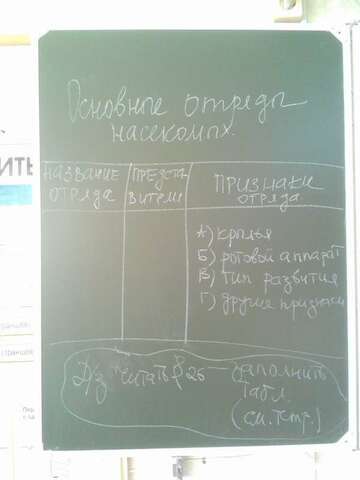 Основные отряды
насекомых.
НАЗВАНИЕ
ОТРЯДА
ПРЕДСТА-
ВИТЕЛИ
ПРИЗНАКИ
ОТРЯДА
А) крылья
Б) ротовой аппарат
В) тип развития
Г) другие признаки
Д/з читать § 26 — заполнить
табл.
(см. тетр.)
ИТЬ